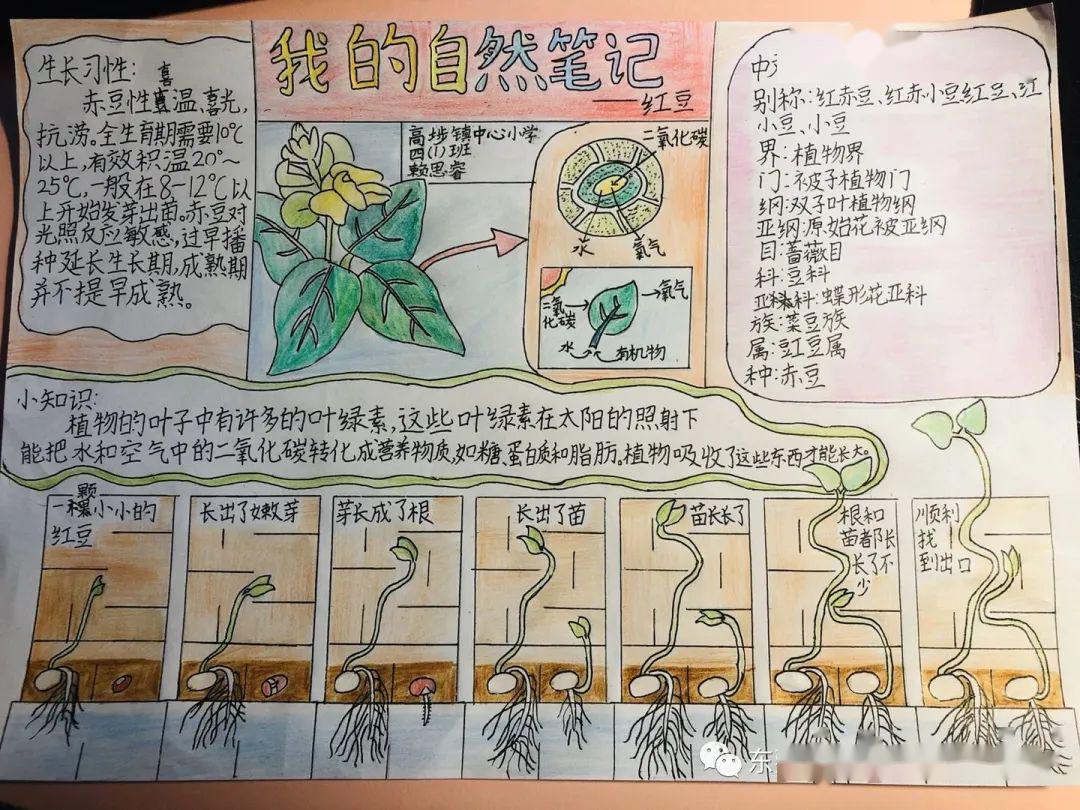 我的自然笔记
——红豆
高埗镇中心小学
四(1)班
赖思睿
生长习性:
喜
赤豆性温、喜光,
抗涝。全生育期需要10℃
以上,有效积温20°~
25℃,一般在8-12℃以
上开始发芽出苗。赤豆对
光照反应敏感,过早播
种延长生长期,成熟期
并不提早成熟。
二氧化碳
水
氧气
二氧
化碳
氧气
水
有机物
别称:红赤豆、红赤小豆红豆、红
小豆、小豆
界:植物界
门:被子植物门
纲:双子叶植物纲
亚纲:原始花被亚纲
目:蔷薇目
科:豆科
亚科:蝶形花亚科
族:菜豆族
属:豇豆属
种:赤豆
小知识:
植物的叶子中有许多的叶绿素,这些叶绿素在太阳的照射下
能把水和空气中的二氧化碳转化成营养物质,如糖、蛋白质和脂肪。植物吸收了这些东西才能长大。
颗
一小小的
红豆
长出了嫩芽
芽长成了根
长出了苗
苗长长了
根和
苗都长
长了不
少
顺利
找
到出口
东